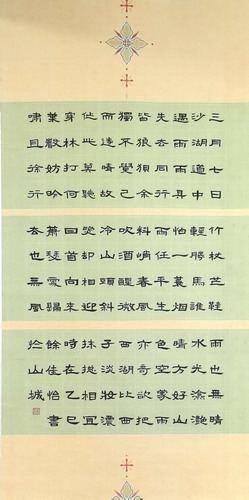 三月七日
沙湖道中
遇雨雨具
先去同行
皆狼狽余
獨不覺已
而遂晴故
作此莫聽
穿林打葉
聲何妨吟
嘯且徐行
竹杖芒鞋
輕勝馬誰
怕一蓑煙
雨任平生
料峭春風
吹酒醒微
冷山頭斜
照卻相迎
回首向來
蕭瑟處歸
去也無風
雨也無晴
水光瀲灩
晴方好山
色空濛雨
亦奇欲把
西湖比西
子淡妝濃
抹總相宜
時在乙巳
餘佳怡書
於山城